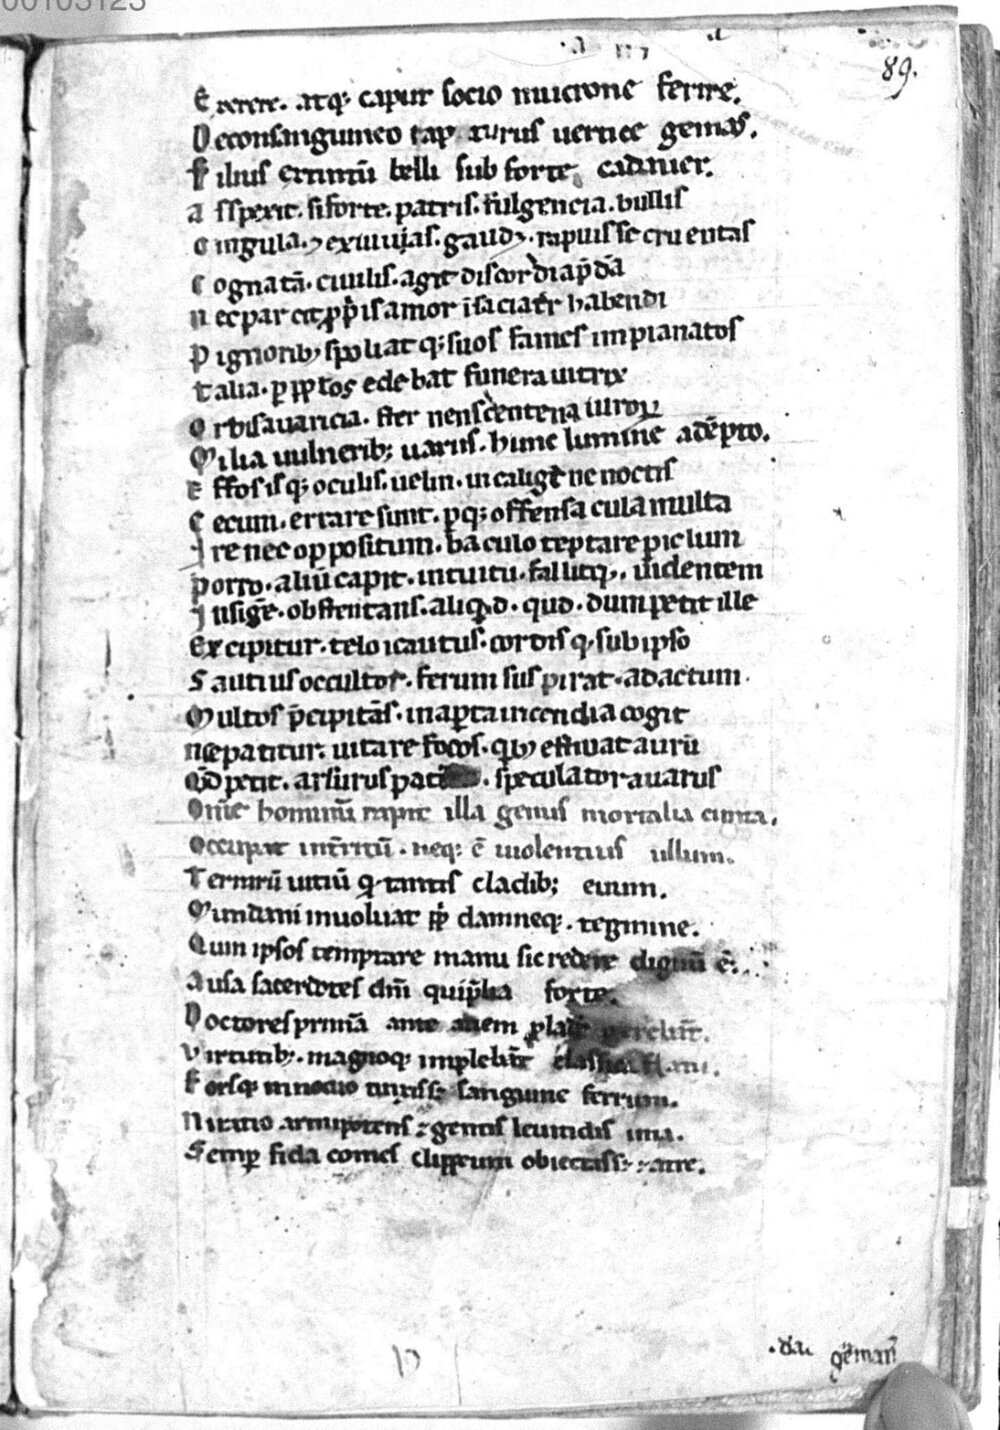 00103123
89.
Exerere. atq; capur socio mucrone ferire.
Deconsanguineo rapturus uertice gemas.
Filius extinctũ belli sub sorte cadauer.
aspexit. siforte. patris. fulgencia. bullis
cingula. ⁊ exuuias. gaudꝫ. rapuisse cruentas
Cognatã. ciuilis. agit discordia p̃dã
nec parcit ꝓp̃is amor ĩsaciat᷑r habendi
Pignorib; spoliat q; suos fames impia natos
talia. ꝑ pp̃tos edebat funera uictrix
Orbis auaricia. ster nens centena uiroꝝ
Milia uulnerib; uariis. hunc lumine adẽpto.
Effosisq; oculis. uelin. in caligẽ ne noctis
Cecum. errare sinit. ꝑq; offensacula multa
Ire nec oppositum. baculo teptare piclum
porro. aliũ capit. intuitu. fallitq;. uidentem
Insigẽ. obstentans. aliqd. quod. dum petit ille
Excipitur. telo icautus. cordis q; sub ipso
Sautius occultos. ferum suspirat. adactum.
Multos p̃cipitãs. inaꝑta incendia cogit
necpatitur. uitare focos. qb; estuat aurũ
Qd̃ petit. arsurus pariter. speculator auarus
Om̃e hominũ rapit illa genus mortalia cuncta.
Occupat int̃ritũ. neq; ẽ uiolentius ullum.
Terrarũ uitiũ q tantis cladib; euum.
Mundani inuoluat ppli damneq;. tegmine.
Quin ipsos temptare manu sic redere dignũ ẽ.
Ausa sacerdotes dm̃ quip̃lia forte.
Doctores primã ante aciem
Virtutib;. magnoq; impleb̃t classica flatu.
Forsq; innocuo tinxiss; sanguine ferrum.
Ni ratio armipotens ⁊ gentis leuitidis una.
Semꝑ fida comes clippeum obiectass; ⁊ arte.